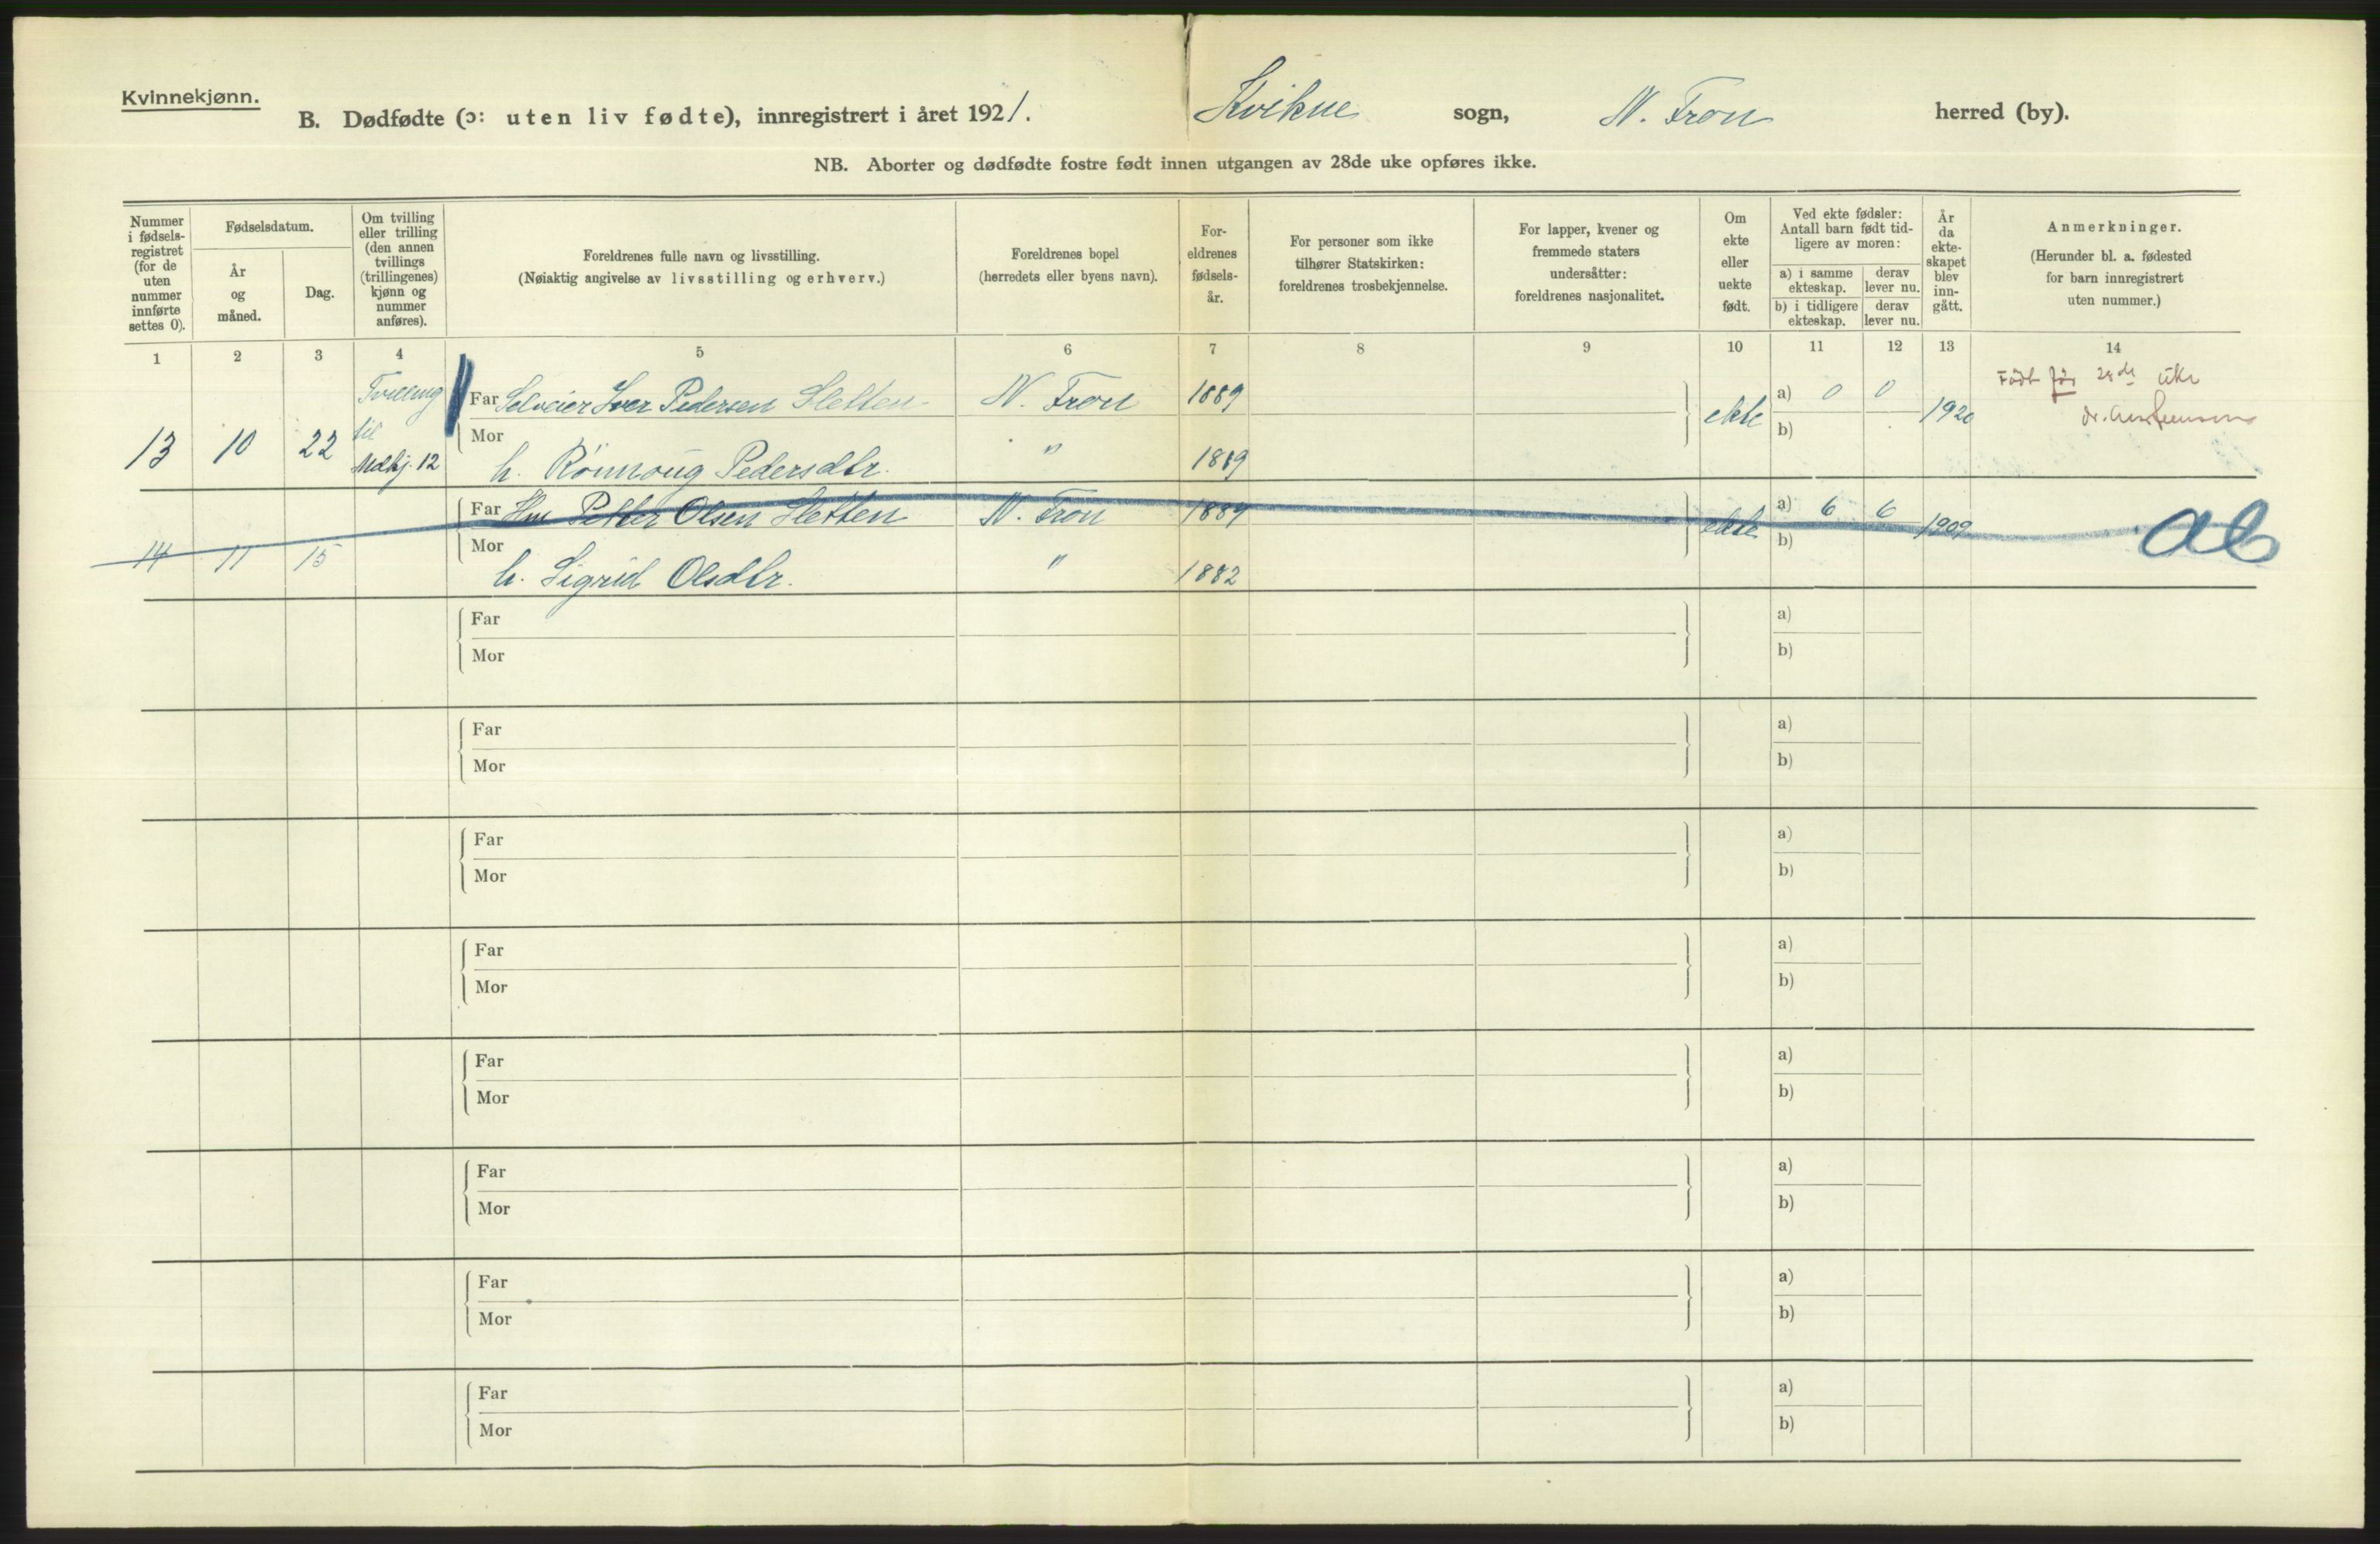 Kvinnekjønn.
B. Dødfødte (ɔ: uten liv fødte), innregistrert i året 1921. Kvikne sogn, N. Fron herred (by).
NB. Aborter og dødfødte fostre født innen utgangen av 28de uke opføres ikke.
Nummer i fødsels-registret (for de uten nummer innførte settes 0).
Fødselsdatum.
År og måned.
Dag.
Om tvilling eller trilling (den annen tvillings (trillingenes) kjønn og nummer anføres).
Foreldrenes fulle navn og livsstilling.
(Nøiaktig angivelse av livsstilling og erhverv.)
Foreldrenes bopel
(herredets eller byens navn).
For-eldrenes fødsels-år.
For personer som ikke tilhører Statskirken: foreldrenes trosbekjennelse.
For lapper, kvener og fremmede staters undersåtter: foreldrenes nasjonalitet.
Om ekte eller uekte født.
Ved ekte fødsler: Antall barn født tid-ligere av moren:
a) i samme ekteskap.
derav lever nu.
b) i tidligere ekteskap.
derav lever nu.
År da ekte-skapet blev inn-gått.
Anmerkninger.
(Herunder bl. a. fødested for barn innregistrert uten nummer.)
1 2 3 4 5 6 7 8 9 10 11 12 13 14
Tvilling Far Selveier Iver Pedersen Sletten N. Fron 1889 a) 0 0 Født før 28de uke
til ekte 1920
13 10 22 Mdkj. 12 Mor h. Rönnoug Pedersdtr. " 1889 b)
Far Petter Olsen Sletten N. Fron 1884 a) 6 6
14 11 15 ekte 1909
Mor h. Sigrid Olsdtr. " 1882 b)
Far a)
Mor b)
Far a)
Mor b)
Far a)
Mor b)
Far a)
Mor b)
Far a)
Mor b)
Far a)
Mor b)
Far a)
Mor b)
Far a)
Mor b)